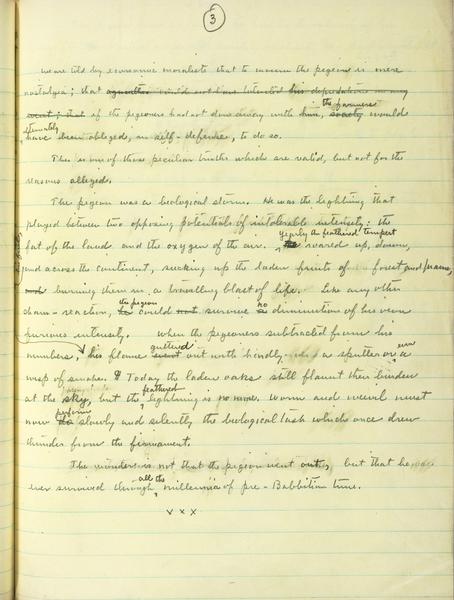 3
We are told by economic moralists that to mourn the pigeon is mere
nostalgia; that agriculture would not have tolerated his depredations in any
event; that if the pigeoners had not done away with him, society the farmers would
ultimately
have been obliged, in self-defense, to do so.
This is one of those peculiar truths which are valid, but not for the
reasons alleged.
The pigeon was a biological storm. He was the lightning that
played between two opposing potentials of intolerable intensity: the
yearly the feathered tempest
fat of the land and the oxygen of the air. roared up, down,
and across the continent, sucking up the laden fruits of forest and prairie,
and burning them in a travelling blast of life. Like any other
chain-reaction, the pigeon could not survive no diminution of his own
furious intensity. When the pigeoners subtracted from his
numbers, his flame guttered went out with hardly a sputter or even a
wisp of smoke. Today the laden oaks still flaunt their burden
at the sky, but the feathered lightning is no more. Worm and weevil must
now perform do slowly and silently the biological task which once drew
thunder from the firmament.
The wonder is not that the pigeon went out, but that he
ever survived through all the millennia of pre-Babbittian time.
x x x